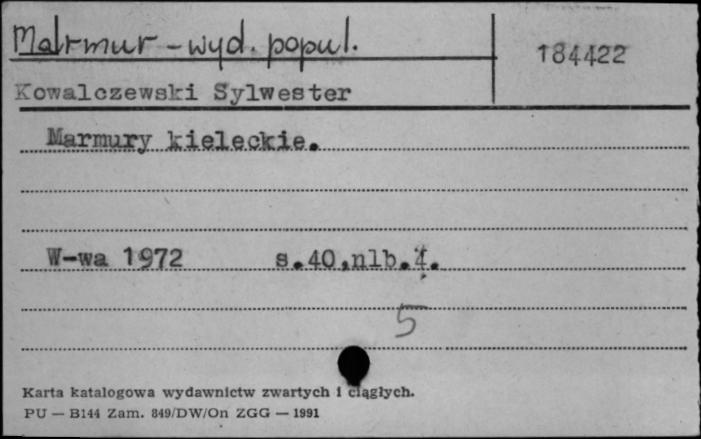 Marmur - wyd. popul.
184422
Kowalczewski Sylwester
Marmury kieleckie.
W-wa 1972 s.40,nlb.
5
Karta katalogowa wydawnictw zwartych i ciągłych.
PU — B144 Zam. 849/DW/On ZGG — 1991